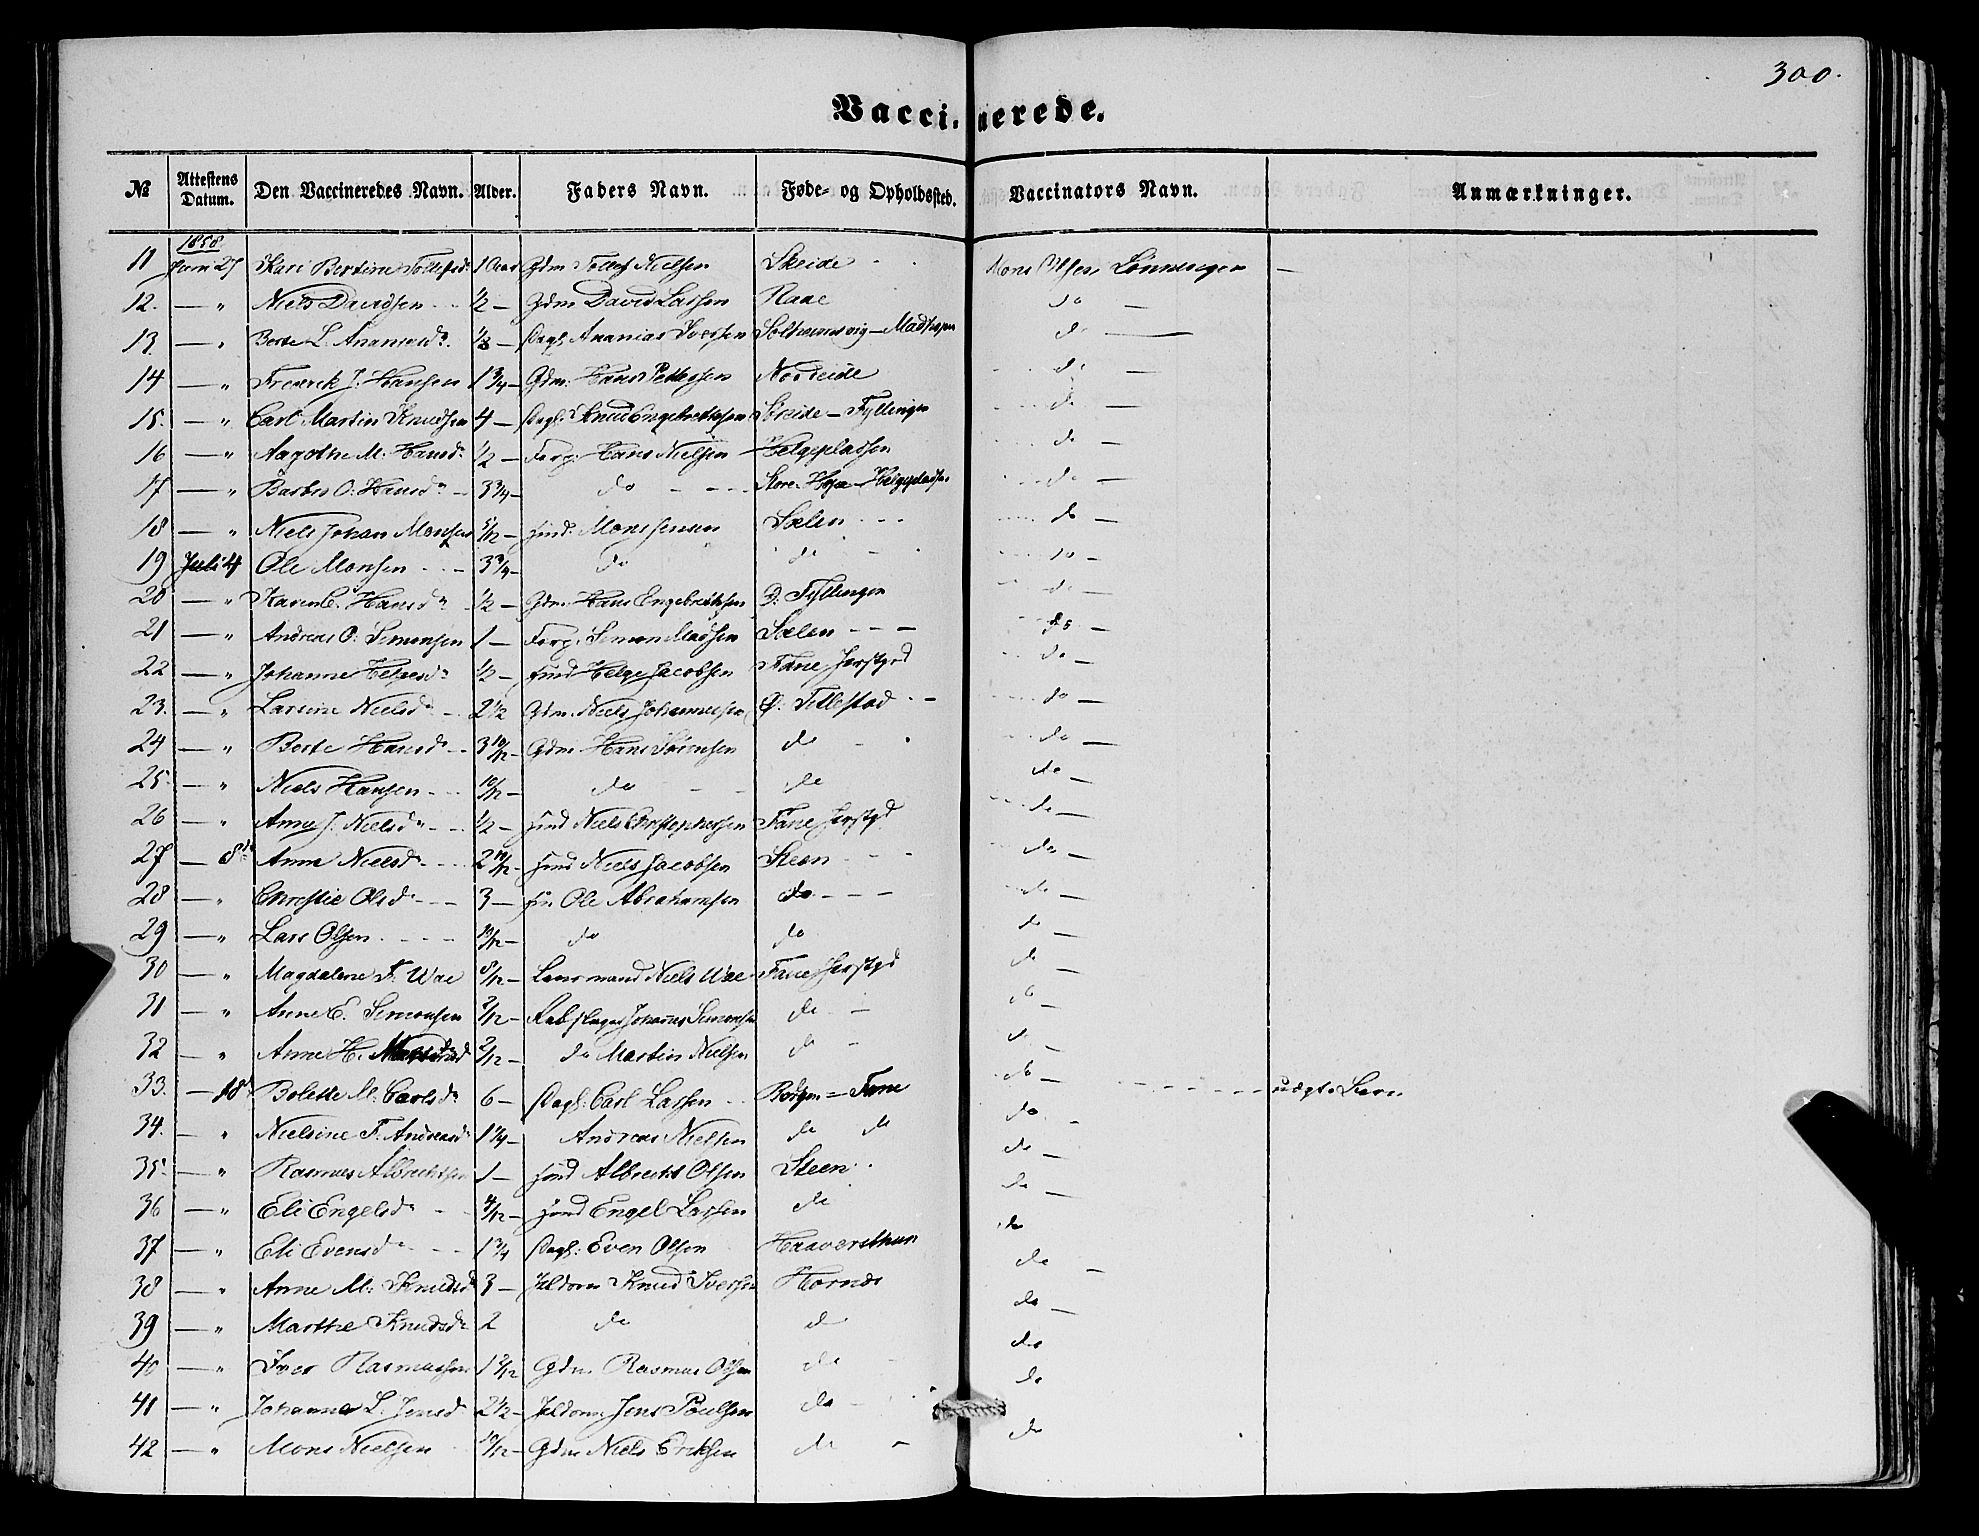 300.
Vaccinerede.
№ Attestens Datum. Den Vaccineredes Navn. Alder. Faders Navn. Føde- og Opholdssted. Vaccinators Navn. Anmærkninger.
1858
11 Juni 27 Kari Bertine Tollefsdr 1 Gdm Tollef Nielsen Skeide Mons Olsen —
12. — " Niels Davidsen ½ — Gdm David Lassen Raae do —
13. — " Berte L. Ananiasdr. — Dagl. Ananias Iversen do —
14 — " Frederik J. Hansen 1¾ — Gdm: Hans Pettersen Nordeide do —
15. — " Carl Martin Knudsen 4 — Dagl: Knud Engebrethsen Søreide — Fyllingen do —
16 — " Aagothe M. Hansdr ½ — Forp. Hans Nielsen Helgeplassen do —
17 — " Barbro O. Hansdr 3¾ — do Store Helgeplassen do —
18 — " Niels Johan Monsen 5/12 — Huusd. Mons Jensen Sælen do —
19 Juli 4 Ole Monsen 3¾ — do do do —
20 — " Karen C. Hansdr ½ — Gdm: Hans Engebrethsen Ø. Fyllingen do —
21 — " Andreas O. Simonsen 1 — Forp. Simon Madsen Sælen do —
22 — " Johanne Helgesdr ½ — Helge Jacobsen Fane do —
23. — " Larsine Nielsdr 2½ Gdm. Niels Johannesen Ø. Titlestad do —
24 — " Berte Hansdr 3 10/12 — Gdm Hans Sørensen do do —
25. — " Niels Hansen 10/12 — do do do —
26 — " Anna J. Nielsdr ½ — Niels Christophersen Fane do —
27 — 8de Anna Nielsdr 2 10/12 — Niels Jacobsen Steen do —
28 — " Christie Olsdr 3 — Ole Abrahamsen do do —
29 — " Lars Olsen 10/12 — do do do —
30 — " Magdalene F. Wae 8/12 — Lensmand Niels Wae Fane do —
31 — " Anne E. Simonsen 3/12 — Rebslager Johannes Simonsen do do —
32 — " Anne H. 2/12 — do Martin Nielsen do do
33. — 18de Bolette M. Carlsdr 6 — Dagl: Carl Lassen — Fane do — Børn
34. — " Nielsine F. Andreasdr 1¼ — Andreas Nielsen do do do —
35. — " Rasmus Albrechtsen 1 — Albrecht Olsen Steen do —
36 — " Eli Engelsdr 4/12 — Engel Lassen do do —
37 — " Eli Evensdr 1¾ Dagl: Even Olsen Haaversthun do
38 — " Anne M. Knudsdr 3 — Knud Iversen Hornæs do —
39 — " Marthe Knudsdr 2 do do do —
40 — " Iver Rasmussen Gdm Rasmus Olsen do do
41 — " Johanne L. Jensdr 2½ — Jens Poulsen do do
42 — " Mons Nielsen 10/12 — Gdm Niels Eriksen do do